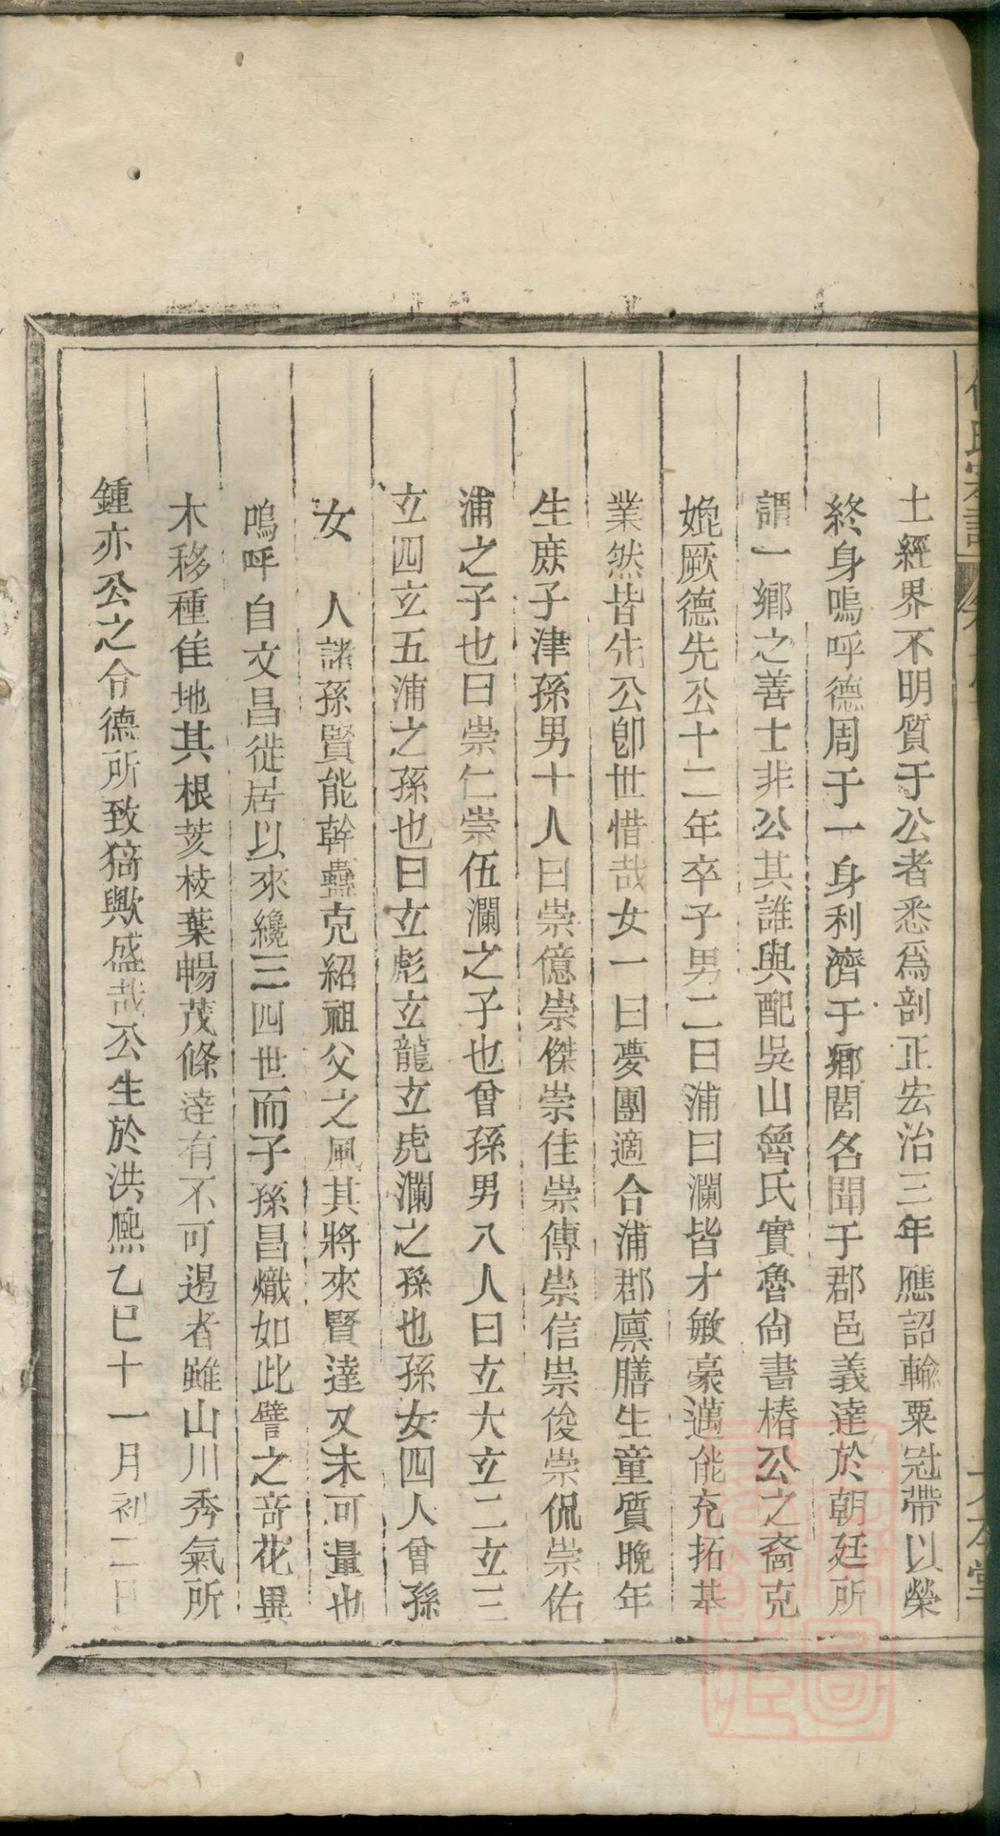 土經界不明質于公者悉爲剖正宏治三年應詔輸粟冠帶以榮
終身嗚呼德周于一身利濟于鄉閭名聞于郡邑義達於朝廷所
謂一鄉之善士非公其誰與配吳山魯氏實魯尙書椿公之裔克
媲厥德先公十二年卒子男二曰浦曰瀾皆才敏豪邁能充拓基
業然皆先公卽世惜哉女一曰夢團適合浦郡廪膳生童質晚年
生庶子津孫男十人曰崇億崇傑崇佳崇傳崇信崇俊崇侃崇佑
浦之子也曰崇仁崇伍瀾之子也曾孫男八人曰立大立二立三
立四立五浦之孫也曰立彪立龍立虎瀾之孫也孫女四人曾孫
女 人諸孫賢能幹蠱克紹祖父之風其將來賢達又未可量也
嗚呼自文昌徙居以來纔三四世而子孫昌熾如此譬之奇花異
木移種佳地其根荄枝葉暢茂條達有不可遏者雖山川秀氣所
鍾亦公之令德所致猗歟盛哉公生於洪熙乙巳十一月初二日